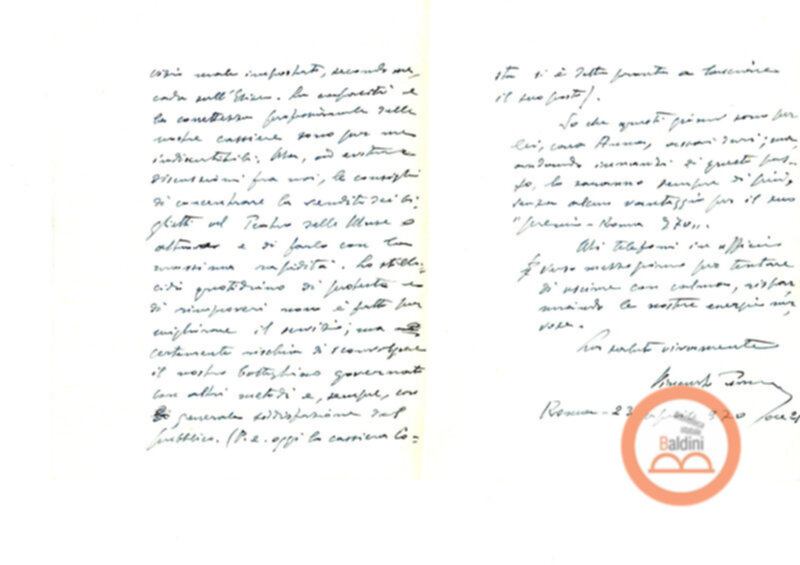 male impostati, secondo me,
sull'Eliseo. La capacità e
la correttezza professionale delle
nostre cassiere sono per me
indiscutibili. Ma, ad evitare
discussioni fra noi, le consiglio
di concentrare la vendita dei bi-
glietti al Teatro delle Muse e
e di farlo con la
massima rapidità. Lo stilli-
cidio quotidiano di proteste e
di rimproveri non è fatto per
migliorare il servizio; ma
certamente rischia di sconvolgere
il nostro botteghino governato
con altri metodi e, sempre, con
generale soddisfazione del
pubblico. (P. e. oggi la cassiera Co-
sta si è detta pronta a lasciare
il suo posto).
So che questi giorni sono per
lei, cara Anna, assai duri; ma
andando innanzi di questo pas-
so, lo saranno sempre di più,
senza alcun vantaggio per il suo
"Premio-Roma 970".
Mi telefoni in ufficio
verso mezzogiorno per tentare
di uscirne con calma, rispar-
miando le nostre energie ner-
vose.
La saluto vivamente
Roma - 23 aprile 970 ore 21
biblioteca
statale
Baldini